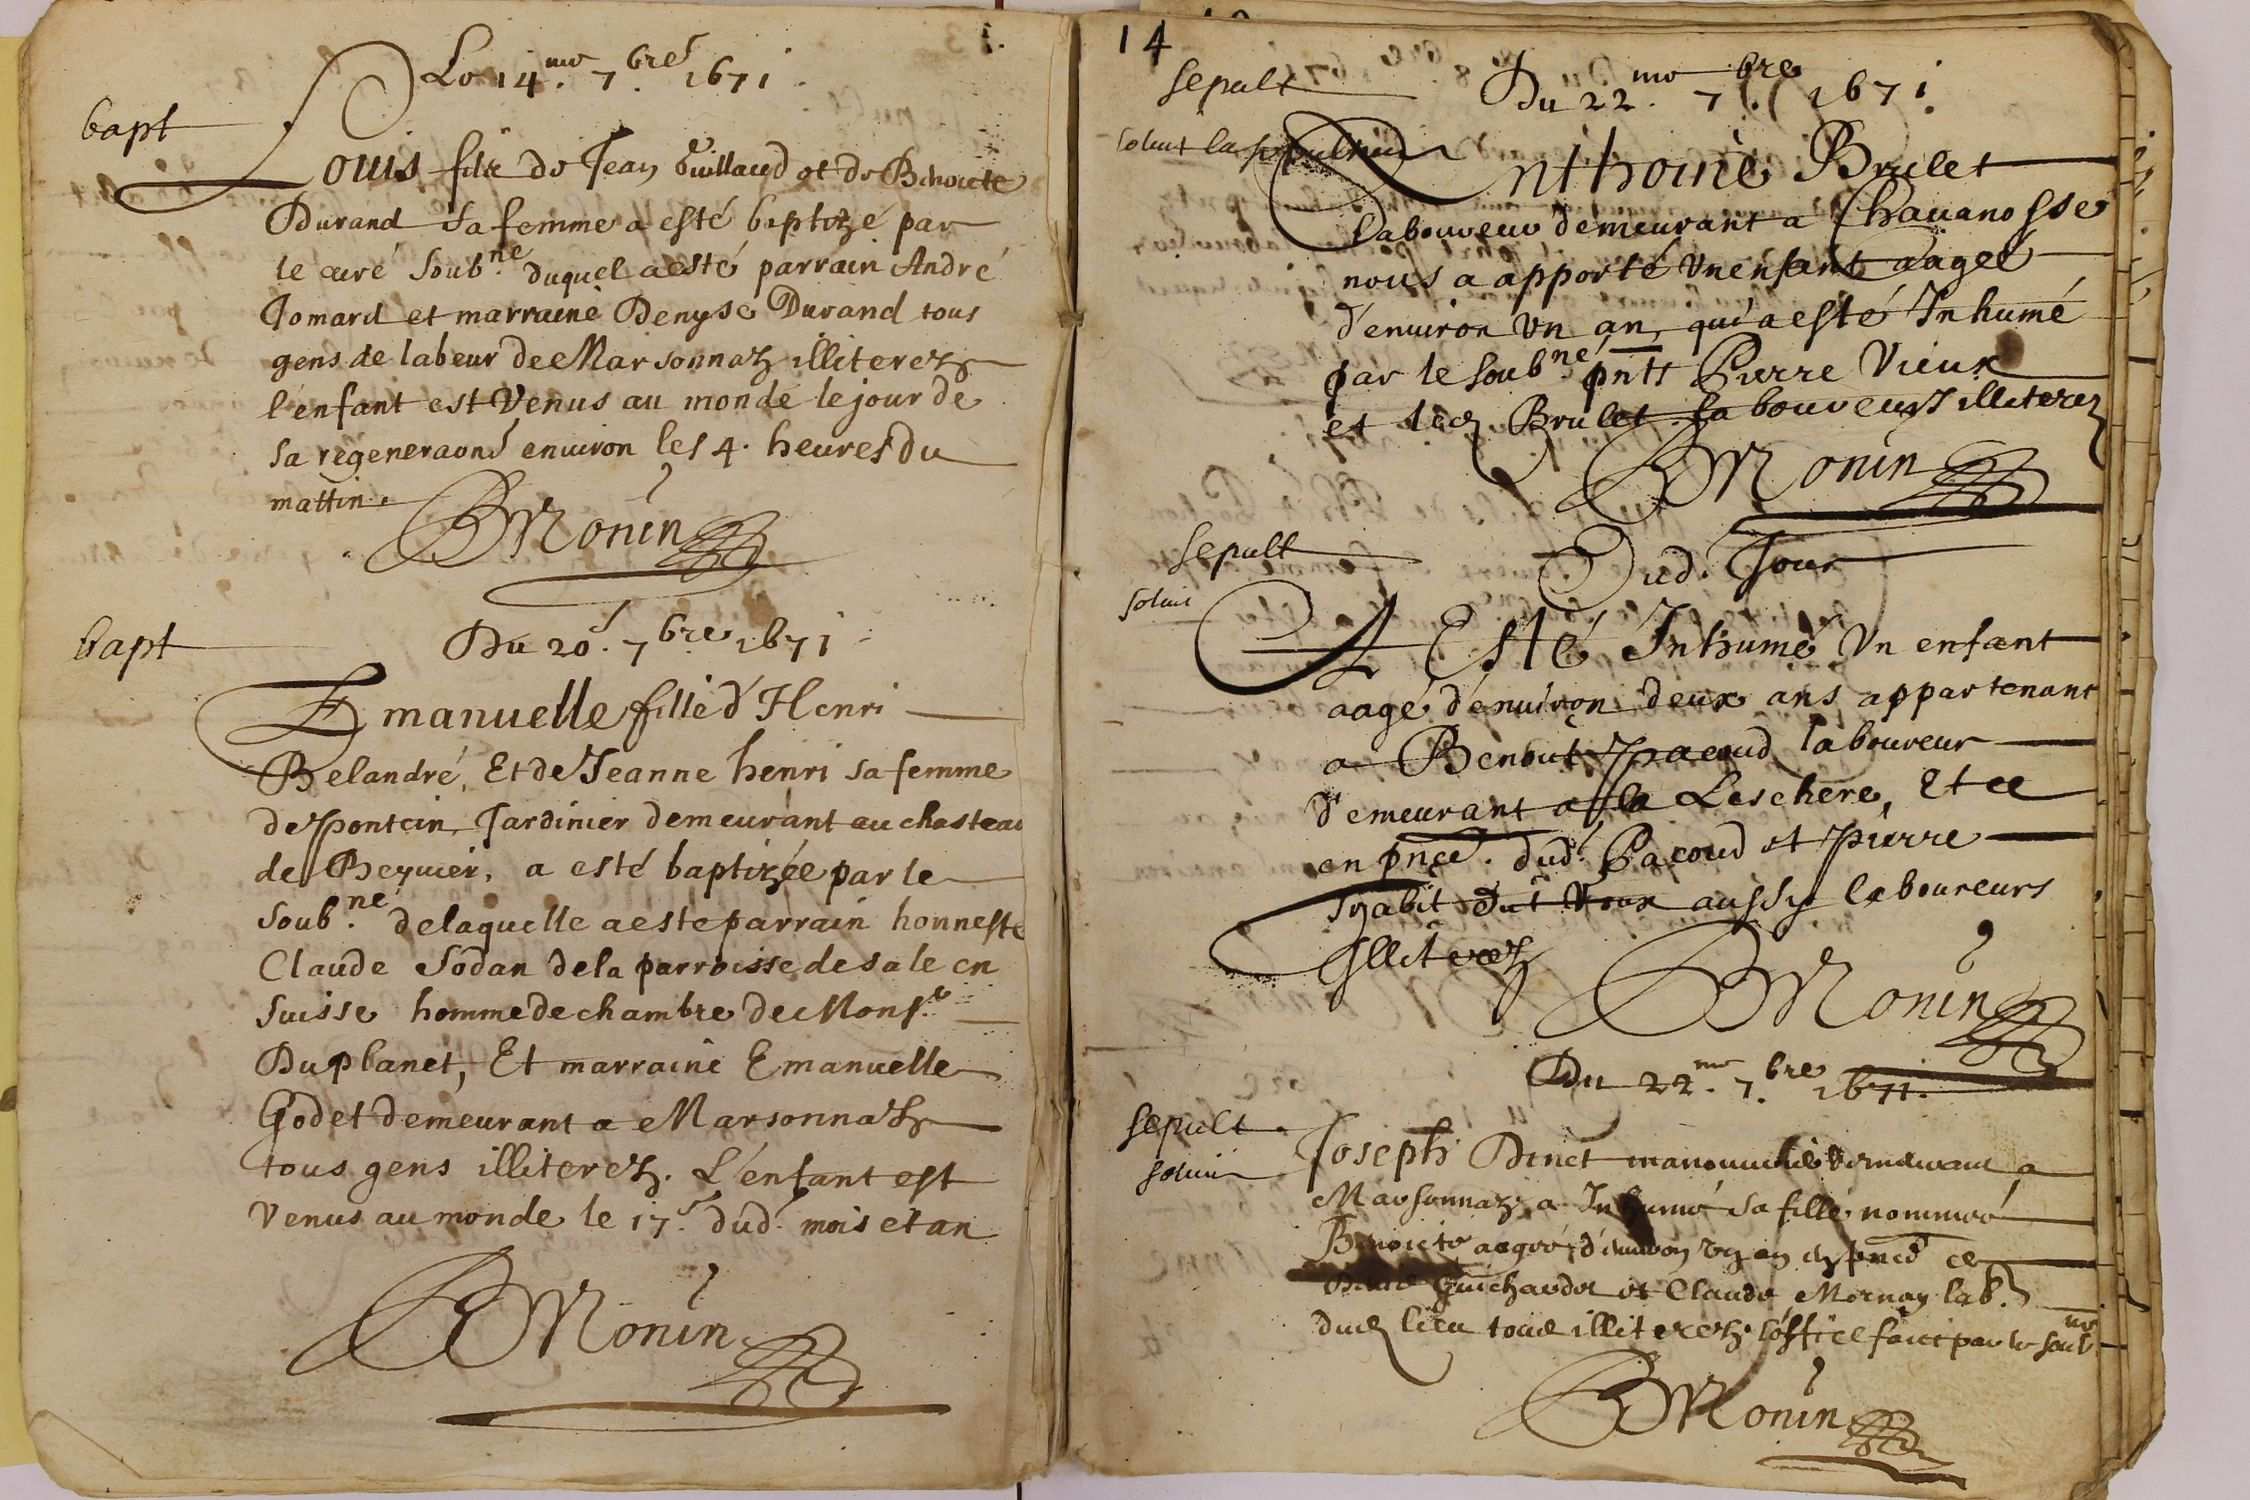 Le 14.me 7.bre 1671
bapt
Louis filz de Jean Guillaud et de Benoicte
Durand sa femme a esté baptizé par
le curé soub.né duquel a esté parrain André
Jomard et marraine Denyse Durand tous
gens de labeur de Marsonnaz illiterez
l'enfant est venus au monde le jour de
sa regeneraon enuiron les 4. heures du
mattin.
BMonin
bapt
Du 20. 7.bre 1671
Emanuelle fille d'Henri
Belandré, Et de Jeanne henri sa femme
de pontein, Jardinier demeurant au chasteau
de Beyuier, a esté baptizée par le
soub.né delaquelle a este parrain honneste
Claude Sodan de la parroisse de sale en
suisse homme de chambre de Mons.r
Duplanet, Et marraine Emanuelle
Godet demeurant a Marsonnaz
tous gens illiterez. L'enfant est
venus au monde le 17. dud. mois et an
BMonin
14
sepult
Du 22.me 7.bre 1671
soluit la sepulture
Anthoine Brulet
laboureur demeurant a Chauanosse
nous a apporté vn enfant aagé
d'enuiron vn an, qui a esté Inhumé
par le soub.né pnts Pierre Vieux
et led Brulet laboureurs illiterez
BMonin
sepult
Dud. Jour
soluit
A Esté Inhumé vn enfant
aagé d'enuiron deux ans appartenant
a Benoit pacoud laboureur
demeurant a la Leschere, Et ce
en pnce. dud. Pacoud et pierre
aussy laboureurs
Illiterez
BMonin
Du 22.me 7.bre 1671.
sepult
soluit
Joseph Dinet manouurie demeurant a
Marsonnaz a Inhumé sa fille nommeé
Benoicte aageé d'enuiron vn an en pnce ce
Guichardet et Claude Mornay lab.
dud lieu tous illiterez. l'office faict par le soub.né
BMonin